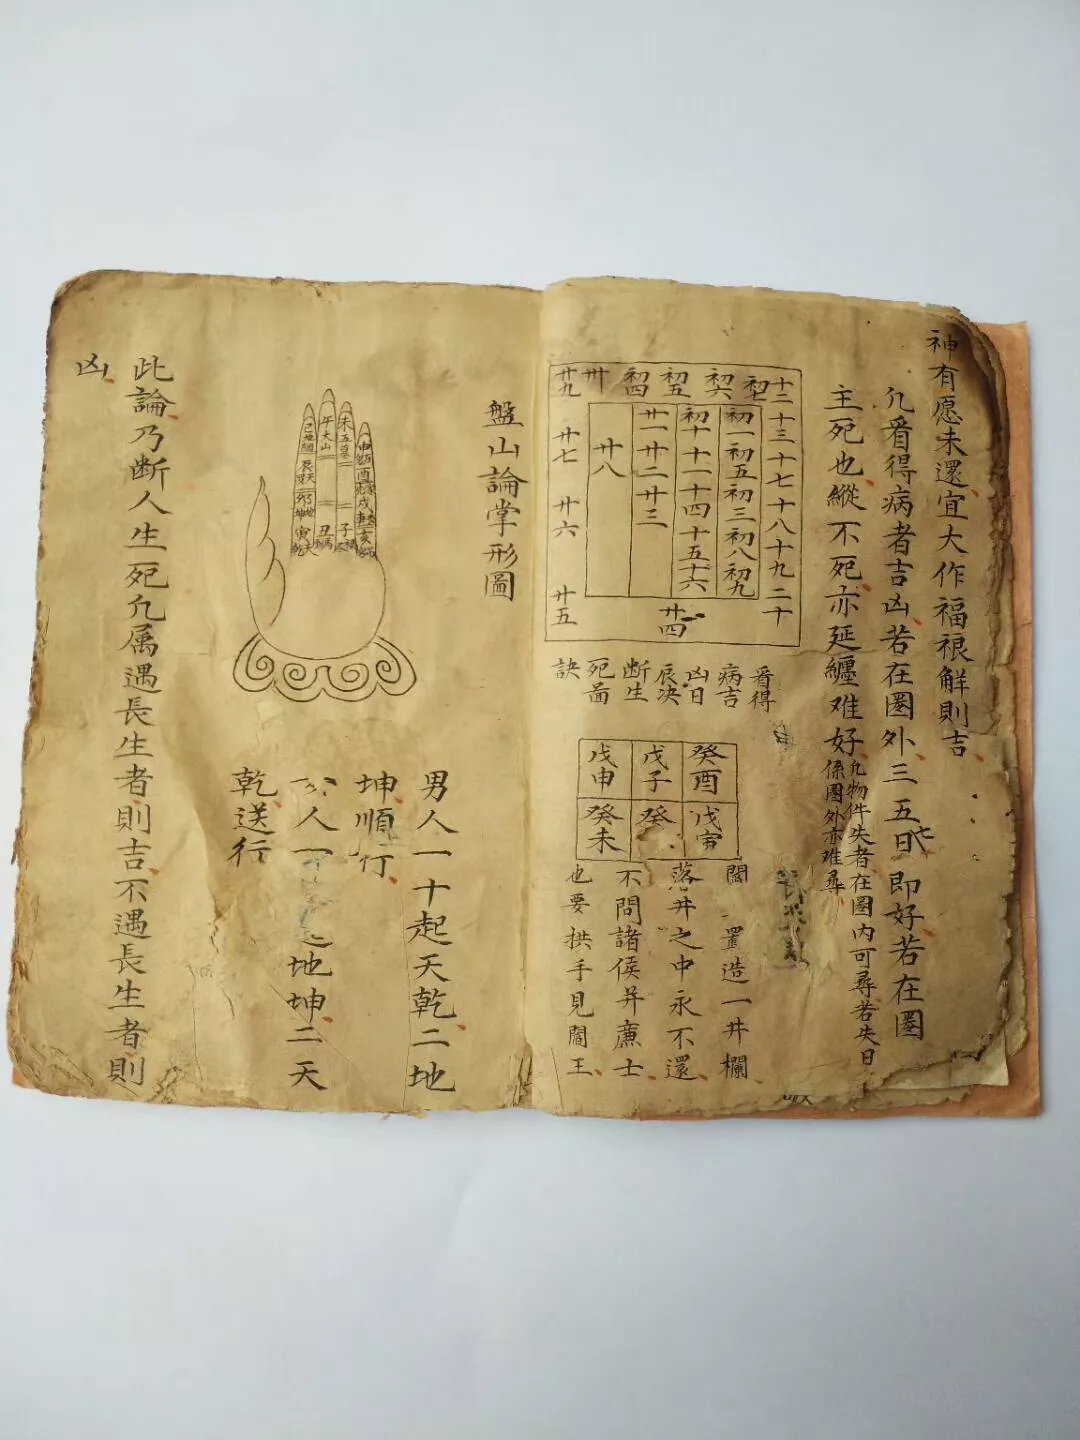 神有愿未還宜大作福禳解則吉
凢看得病者吉凶若在圏外三五七日即好若在圏
主死也縱不死亦延纏难好
凢物件失者在圏内可尋若失日
係圏外亦难尋
十二十三十七十八十九二十
初七
初六
初五
初四
卅
廿九
初一初五初三初八初九
初十十一十四十五十六
廿一廿二廿三
廿八
廿七
廿六
廿五
廿四
看得
病吉
凶日
辰决
断生
死啚
訣
癸酉
戊子
戊申
戊寅
癸
癸未
閻
置造一井欄
落井之中永不還
不問諸侯并㢘士
也要拱手見閻王
盤山論掌形圖
未五墓
午大山
子
丑
寅
男人一十起天乾二地
坤順行
人一
地坤二天
乾送行
此論乃断人生死凢属遇長生者則吉不遇長生者則
凶